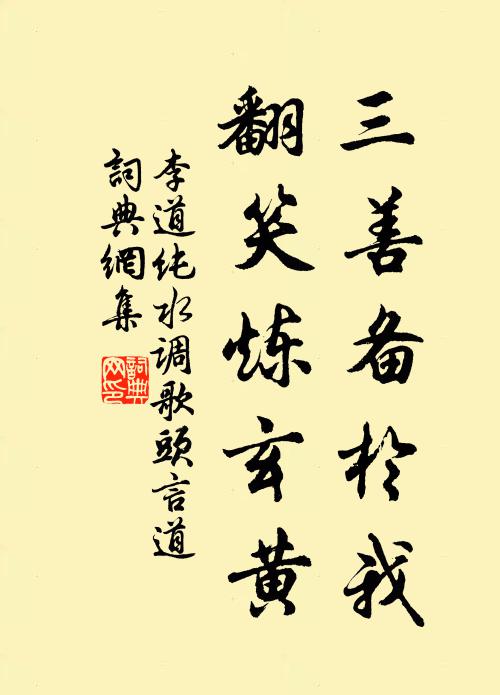 三善备於我
翻笑炼玄黄
李道纯水调歌头言道
詞典網集
詞典網印